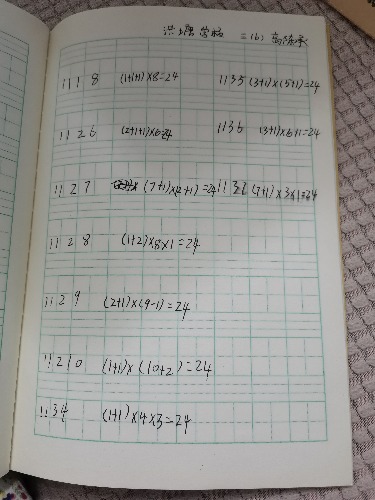 洪塘营福 二(6) 高陈承
1 1 1 8 (1+1+1)×8=24 1 1 3 5 (3+1)×(5+1)=24
1 1 2 6 (2+1+1)×6=24 1 1 3 6 (3+1)×6÷1=24
1 1 2 7 (7+1)×(2+1)=24 1 1 3 7 (7+1)×3×1=24
1 1 2 8 (1+2)×8×1=24
1 1 2 9 (2+1)×(9-1)=24
1 1 2 10 (1+1)×(10+2)=24
1 1 3 4 (1+1)×4×3=24